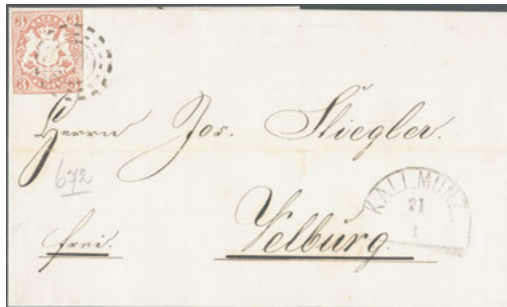 3 BAYERN 3
3 3
Herrn Jos. Stiegler.
672
KALLMÜNZ.
21
1
frei.
Velburg.